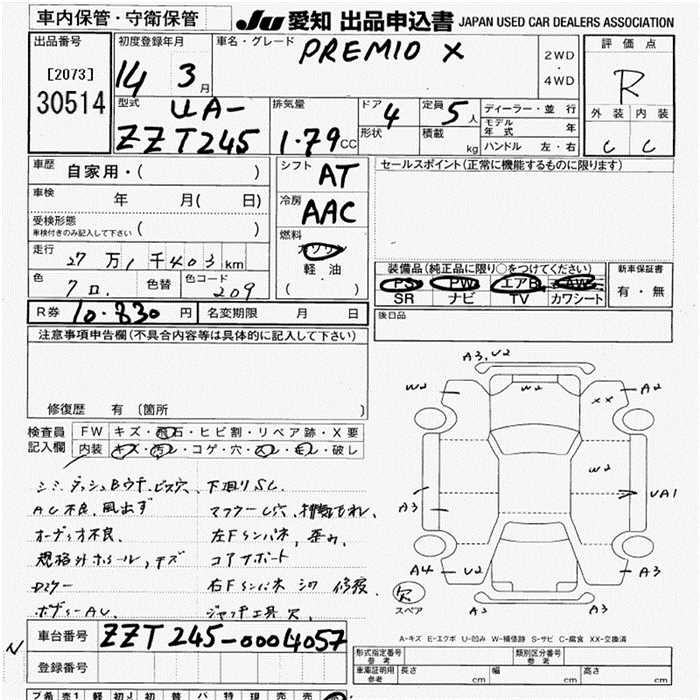 車内保管・守衛保管
JU 愛知 出品申込書 JAPAN USED CAR DEALERS ASSOCIATION
出品番号
[2073]
30514
初度登録年月
14 3月
車名・グレード
PREMIO X
2WD
・
4WD
評価点
R
外装 内装
C C
型式
UA-
ZZT245
排気量
1.79cc
ドア
4
定員
5人
形状
積載
kg
ディーラー・並行
モデル年式 年
ハンドル 左・右
車歴
自家用・( )
車検
年 月( 日)
受検形態
車検付きのみ記入して下さい
( )
走行
27万1千403km
色
クロ
色替
色コード
209
シフト
AT
冷房
AAC
燃料
ガソリン
軽・油
( )
セールスポイント(正常に機能するものに限ります)
装備品(純正品に限り○をつけてください)
PS PW エアB AW
SR ナビ TV カワシート
新車保証書
有・無
R券 10.830円
名変期限 月 日
後日品
注意事項申告欄(不具合内容等は具体的に記入して下さい)
修復歴 有 〔箇所 〕
検査員
記入欄
FW キズ・飛石・ヒビ割・リペア跡・X要
内装 キズ・汚レ・コゲ・穴・スレ・モレ・破レ
シミ.ダッシュBウキ.ビス穴.
AC不良.風出ず
オーディオ不良.
規格外ホイール,キズ
下回りSC.
マフラーC穴.排気もれ.
左Fランバネ,歪み.
コアサポート
右Fランバネ
修復
ジャッキ工具欠.
ボディーAU.
A3,U2
W2
W2
A2
XX
W2
A3
UA1
A4
U2
A3
欠
スペア
A3
A-キズ E-エクボ U-凹み W-補修跡 S-サビ C-腐食 XX-交換済
車台番号
ZZT245-0004057
登録番号
形式指定番号
参考
類別区分番号
参考
車庫証明用
参考
長さ cm
幅 cm
高さ cm